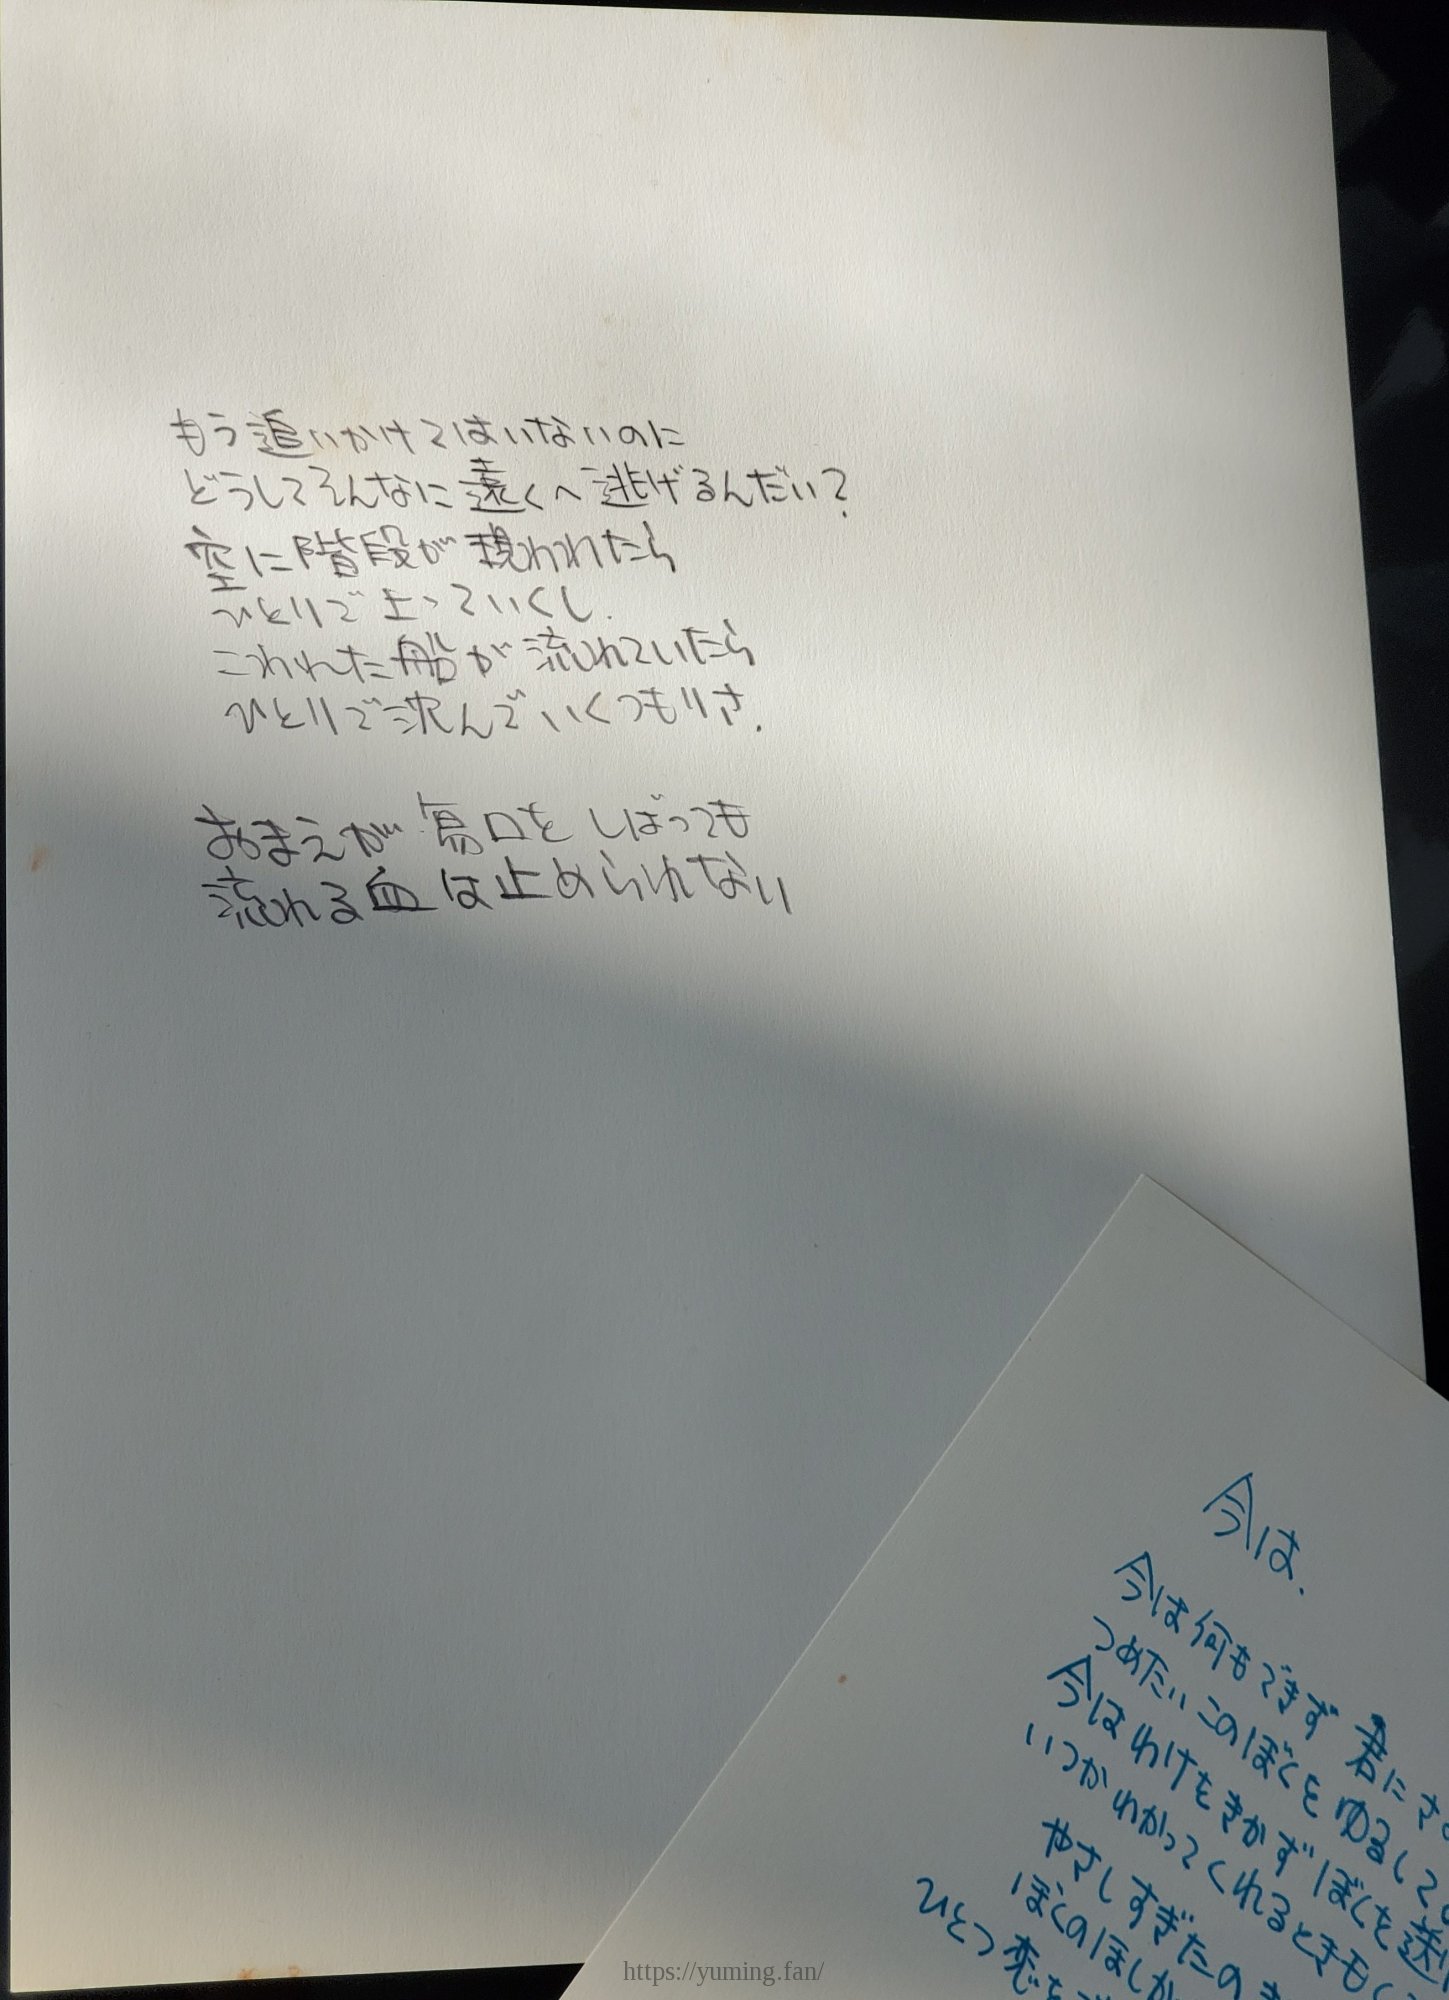 もう追いかけてはいないのに
どうしてそんなに遠くへ逃げるんだい?
空に階段が現われたら
ひとりで上っていくし.
こわれた船が流れていたら
ひとりで沈んでいくつもりさ.
おまえが傷口をしばっても
流れる血は止められない
今は.
今は何もできず 君にさ
つめたいこのぼくを ゆるして
今はわけをきかず ぼくを送
いつかわかってくれるときも
やさしすぎたの
ぼくのほしか
ひとつ恋を
https://yuming.fan/